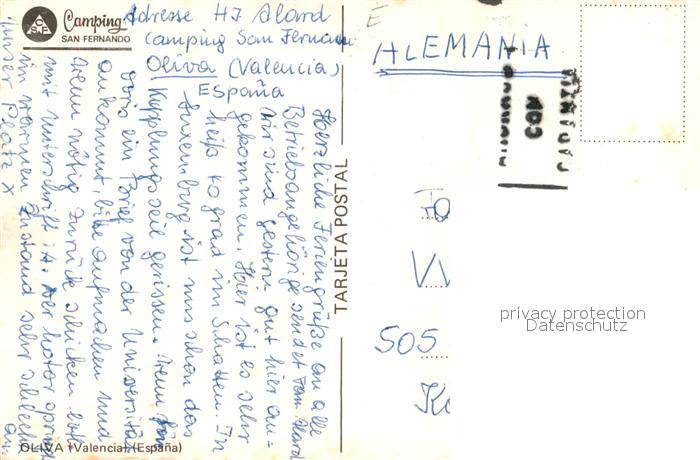 C.S.F.
Camping
SAN FERNANDO
Adresse HJ Alard
Camping San Fernando
Oliva (Valencia)
España
Herzliche Feriengrüße an alle
Betriebsangehörige sendet Fam. Alard
wir sind gestern gut hier an-
gekommen. Hier ist es sehr
heiß 40 grad im Schatten. In
Luxemburg ist uns schon das
Kupplungsseil gerissen. Wenn für
Doris ein Brief von der Universität
ankommt, bitte aufmachen und
wenn nötig zurück schicken bitte
mit Unterschrift i.A. Der Motor springt
im warmen Zustand sehr schlecht
an.
unser Platz X
TARJETA POSTAL
OLIVA (Valencia) (España)
E
ALEMANIA
CON
505
privacy protection
Datenschutz